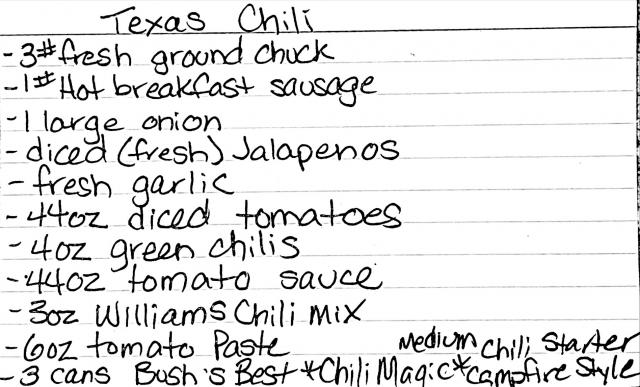 Texas Chili
-3# fresh ground chuck
-1# Hot breakfast sausage
-1 large onion
-diced (fresh) Jalapenos
-fresh garlic
-44oz diced tomatoes
-4oz green chilis
-44oz tomato sauce
-3oz Williams Chili Mix
-6oz tomato Paste
-3 cans Bush's Best *Chili Magic* Medium Chili Starter Campfire Style